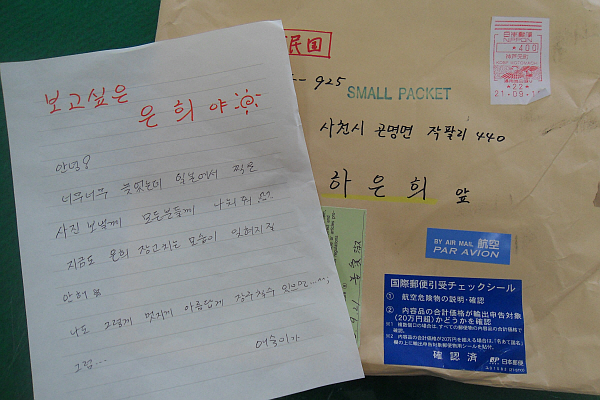 보고싶은
은희야
안녕?
너무너무 늦었는데 일본에서 찍은
사진 보낼께 모든분들께 나눠 줘
지금도 은희 장고치는 모습이 잊혀지질
안허
나도 그렇게 멋지게 아름답게 장구칠수 있으면....
그럼...
애숙이가
民国
925
SMALL PACKET
사천시 곤명면 작팔리 440
하은희 앞
日本郵便
NIPPON
*400
*22*
21.09.1
BY AIR MAIL 航空
PAR AVION
国際郵便引受チェックシール
① 航空危険物の説明・確認
② 内容品の合計価格が輸出申告対象
(20万円超)かどうかを確認
確認済 日本郵便